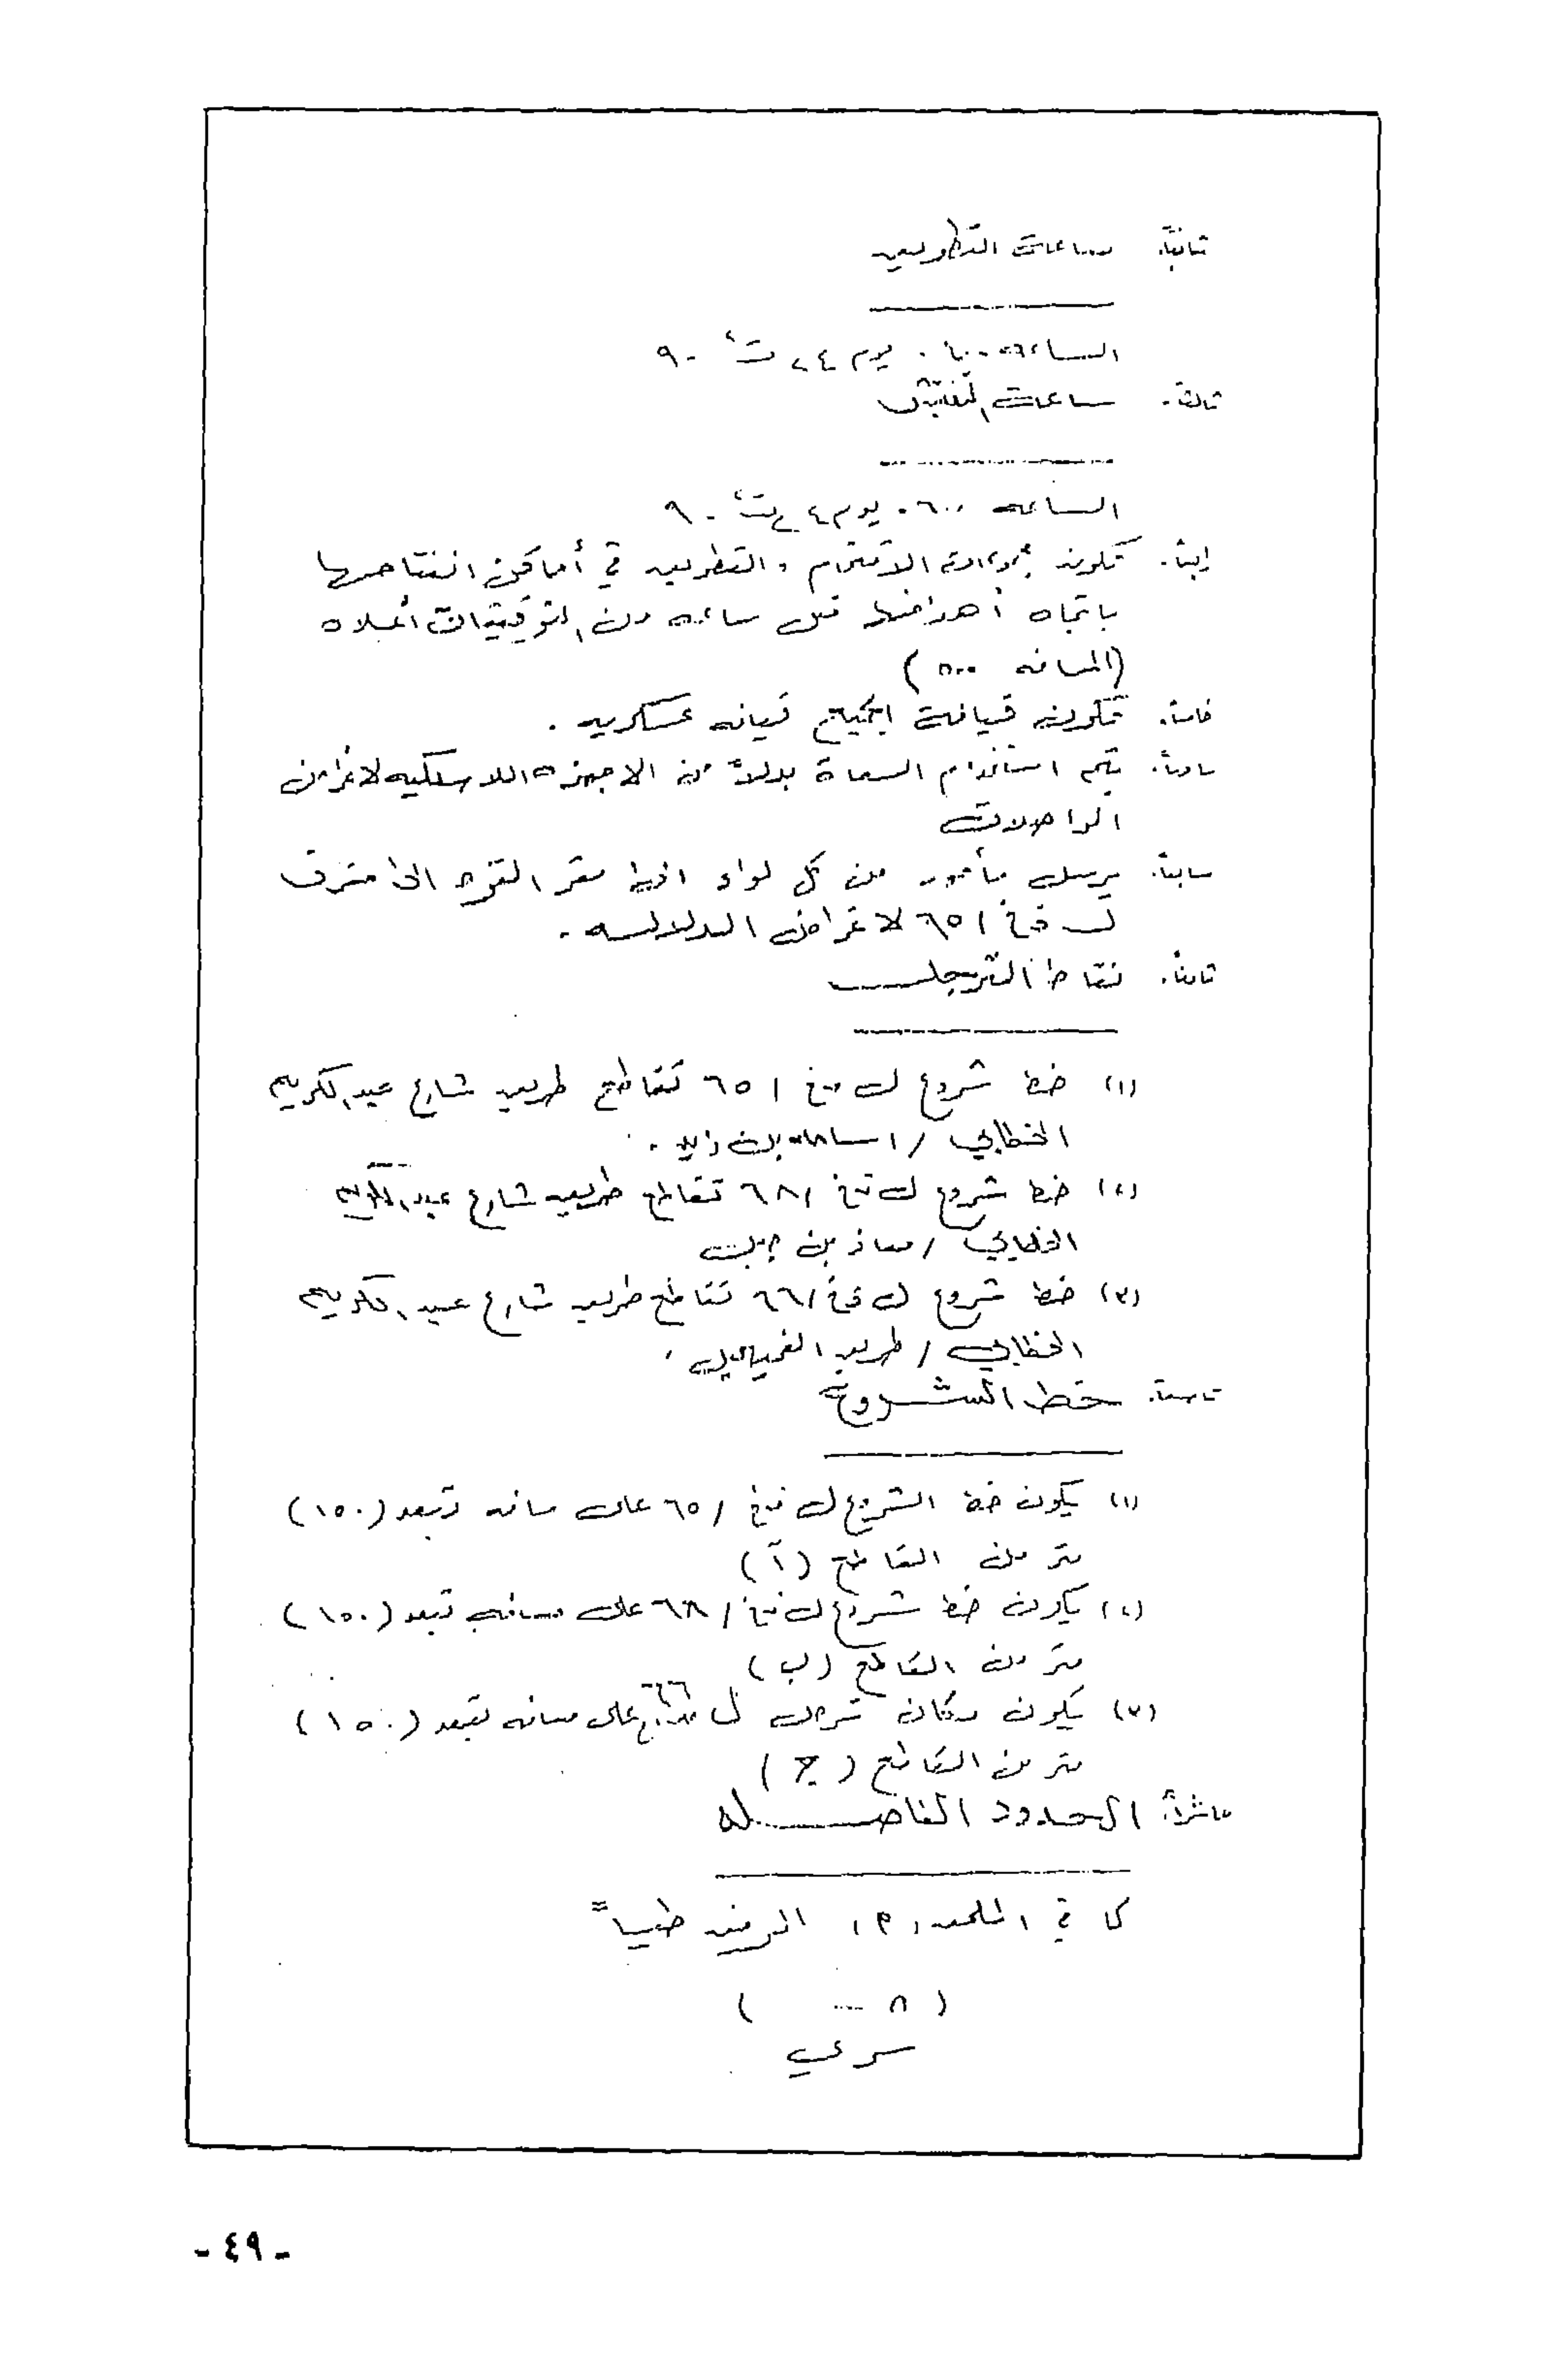 ثانياً. ساعات التطويق
الساعة ٠٦٠٠ يوم ٢٤ ت٢ ٩٠
ثالثاً. ساعات التفتيش
الساعه ٠٦٠٠ يوم ٢٤ ت٢ ٩٠
رابعاً. تكون الاقتحام والتطويق في أماكن انفتاحها
باتجاه أهدافها قبل ساعه من التوقيتات أعلاه
(المسافه ٥٠٠)
خامساً. تكون قيافة الجميع قيافه عسكريه .
سادساً. يتم استخدام السعاة بدلاً من الاجهزه اللاسلكيه لاغراض
المواصلات
سابعاً. يرسل مأمور من كل لواء الى مقر
ل ق خ / ٦٥ لاغراض الدلالسه .
ثامناً. نقاط الترجل
(١) خط شروع ل ق خ / ٦٥ تقاطع طريق شارع عبدالكريم
الخطابي / اسامه بن زيد .
(٢) خط شروع ل ق خ / ٦٨ تقاطع طريق شارع عبدالكريم
الخطابي / معاذ بن جبل
(٣) خط شروع ل ق خ / ٦٦ تقاطع طريق شارع عبدالكريم
الخطابي / طريق
تاسعاً. خط الشروع
(١) يكون خط الشروع ل ق خ / ٦٥ على مسافه تبعد (١٥٠)
متر من القاطع (آ)
(٢) يكون خط شروع ل ق خ / ٦٨ على مسافه تبعد (١٥٠)
متر من القاطع (ب)
(٣) يكون مكان ل ق خ ٦٦ على مسافه تبعد (١٥٠)
متر من القاطع (ج)
عاشراً. الحدود الفاصله
كما في الملحق (م) المرفق طياً
( ٨ ... )
سري
- ٤٩ -